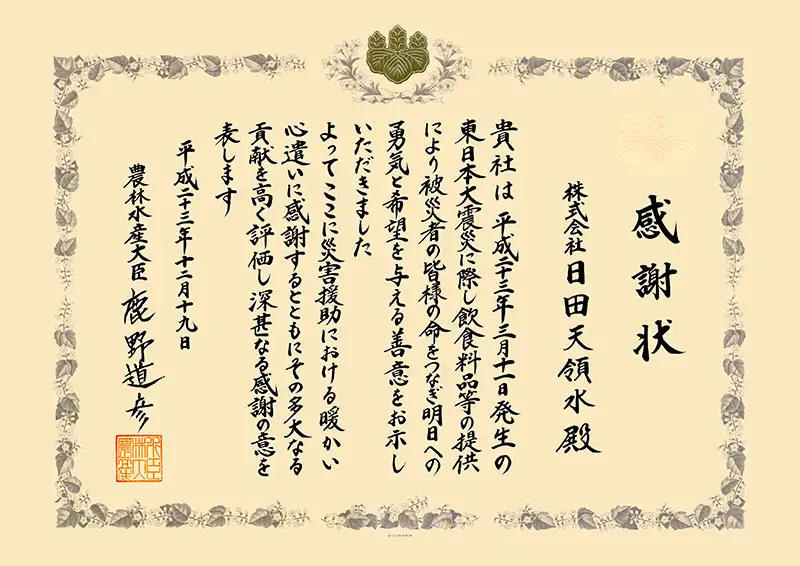 感謝状
株式会社日田天領水殿
貴社は平成二十三年三月十一日発生の
東日本大震災に際し飲食料品等の提供
により被災者の皆様の命をつなぎ明日への
勇気と希望を与える善意をお示し
いただきました
よってここに災害援助における暖かい
心遣いに感謝するとともにその多大なる
貢献を高く評価し深甚なる感謝の意を
表します
平成二十三年十二月十九日
農林水産大臣 鹿野道彦